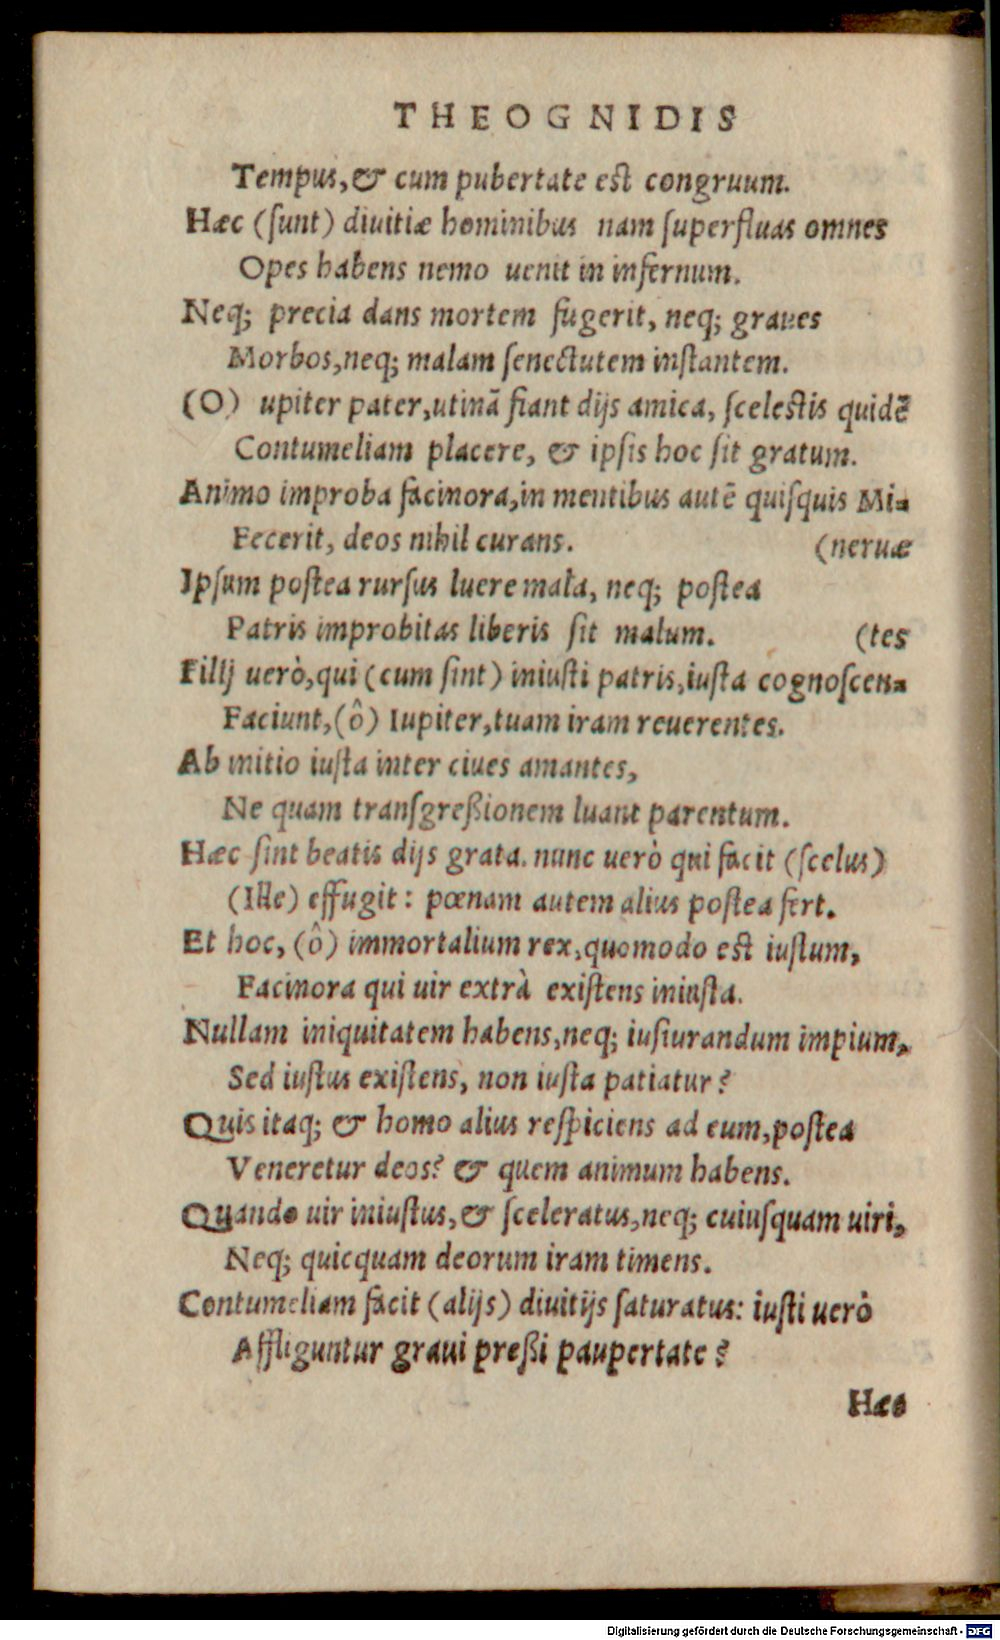 THEOGNIDIS
Tempus, & cum pubertate est congruum.
Hæc (sunt) diuitiæ hominibus nam superfluas omnes
Opes habens nemo uenit in infernum.
Neq; precia dans mortem fugerit, neq; graues
Morbos, neq; malam senectutem instantem.
(O) upiter pater, utinā fiant dijs amica, scelestis quidē
Contumeliam placere, & ipsis hoc sit gratum.
Animo improba facinora, in mentibus autē quisquis Mi-
Fecerit, deos nihil curans. (neruæ
Ipsum postea rursus luere mala, neq; postea
Patris improbitas liberis sit malum. (tes
Filij uerò, qui (cum sint) iniusti patris, iusta cognoscen-
Faciunt, (ô) Iupiter, tuam iram reuerentes.
Ab initio iusta inter ciues amantes,
Ne quam transgreßionem luant parentum.
Hæc sint beatis dijs grata. nunc uerò qui facit (scelus)
(Ille) effugit: pœnam autem alius postea fert.
Et hoc, (ô) immortalium rex, quomodo est iustum,
Facinora qui uir extrà existens iniusta.
Nullam iniquitatem habens, neq; iusiurandum impium,
Sed iustus existens, non iusta patiatur?
Quis itaq; & homo alius respiciens ad eum, postea
Veneretur deos? & quem animum habens.
Quando uir iniustus, & sceleratus, neq; cuiusquam uiri,
Neq; quicquam deorum iram timens.
Contumeliam facit (alijs) diuitijs saturatus: iusti uerò
Affliguntur graui preßi paupertate?
Hæc
Digitalisierung gefördert durch die Deutsche Forschungsgemeinschaft - DFG